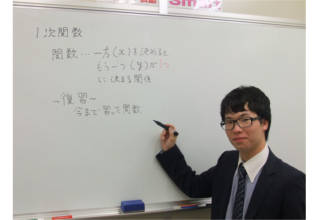 1次関数
関数…一方(x)を決めると
もう一つ(y)が1つ
に決まる関係
〜復習〜
今まで習った関数